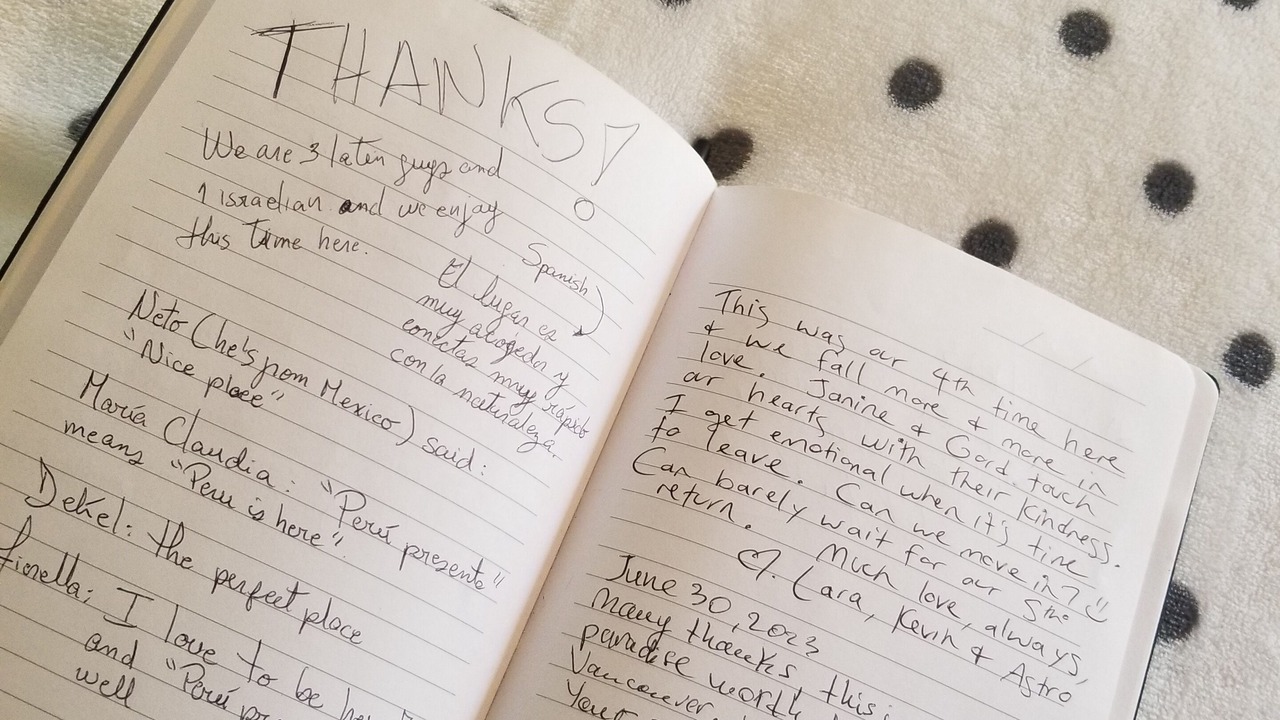 THANKS!
We are 3 laten guys and
1 israelian and we enjoy
this time here.
Spanish
El lugar es
muy acogedor y
conectas muy rápido
con la naturaleza.
Neto (he's from Mexico) said:
"Nice place"
María Claudia: "Perú presente"
means "Peru is here".
Dekel: the perfect place
fiorella: I love to be
and "Perú
well
This was our 4th time here
& we fall more & more in
love. Janine & Gord touch
our hearts with their kindness.
I get emotional when it's time
to leave. Can we move in? ☺
Can barely wait for our 5th
return.
Much love, always,
♡. Lara, Kevin & Astro
June 30, 2023
many thanks this
paradise worth
Vancouver